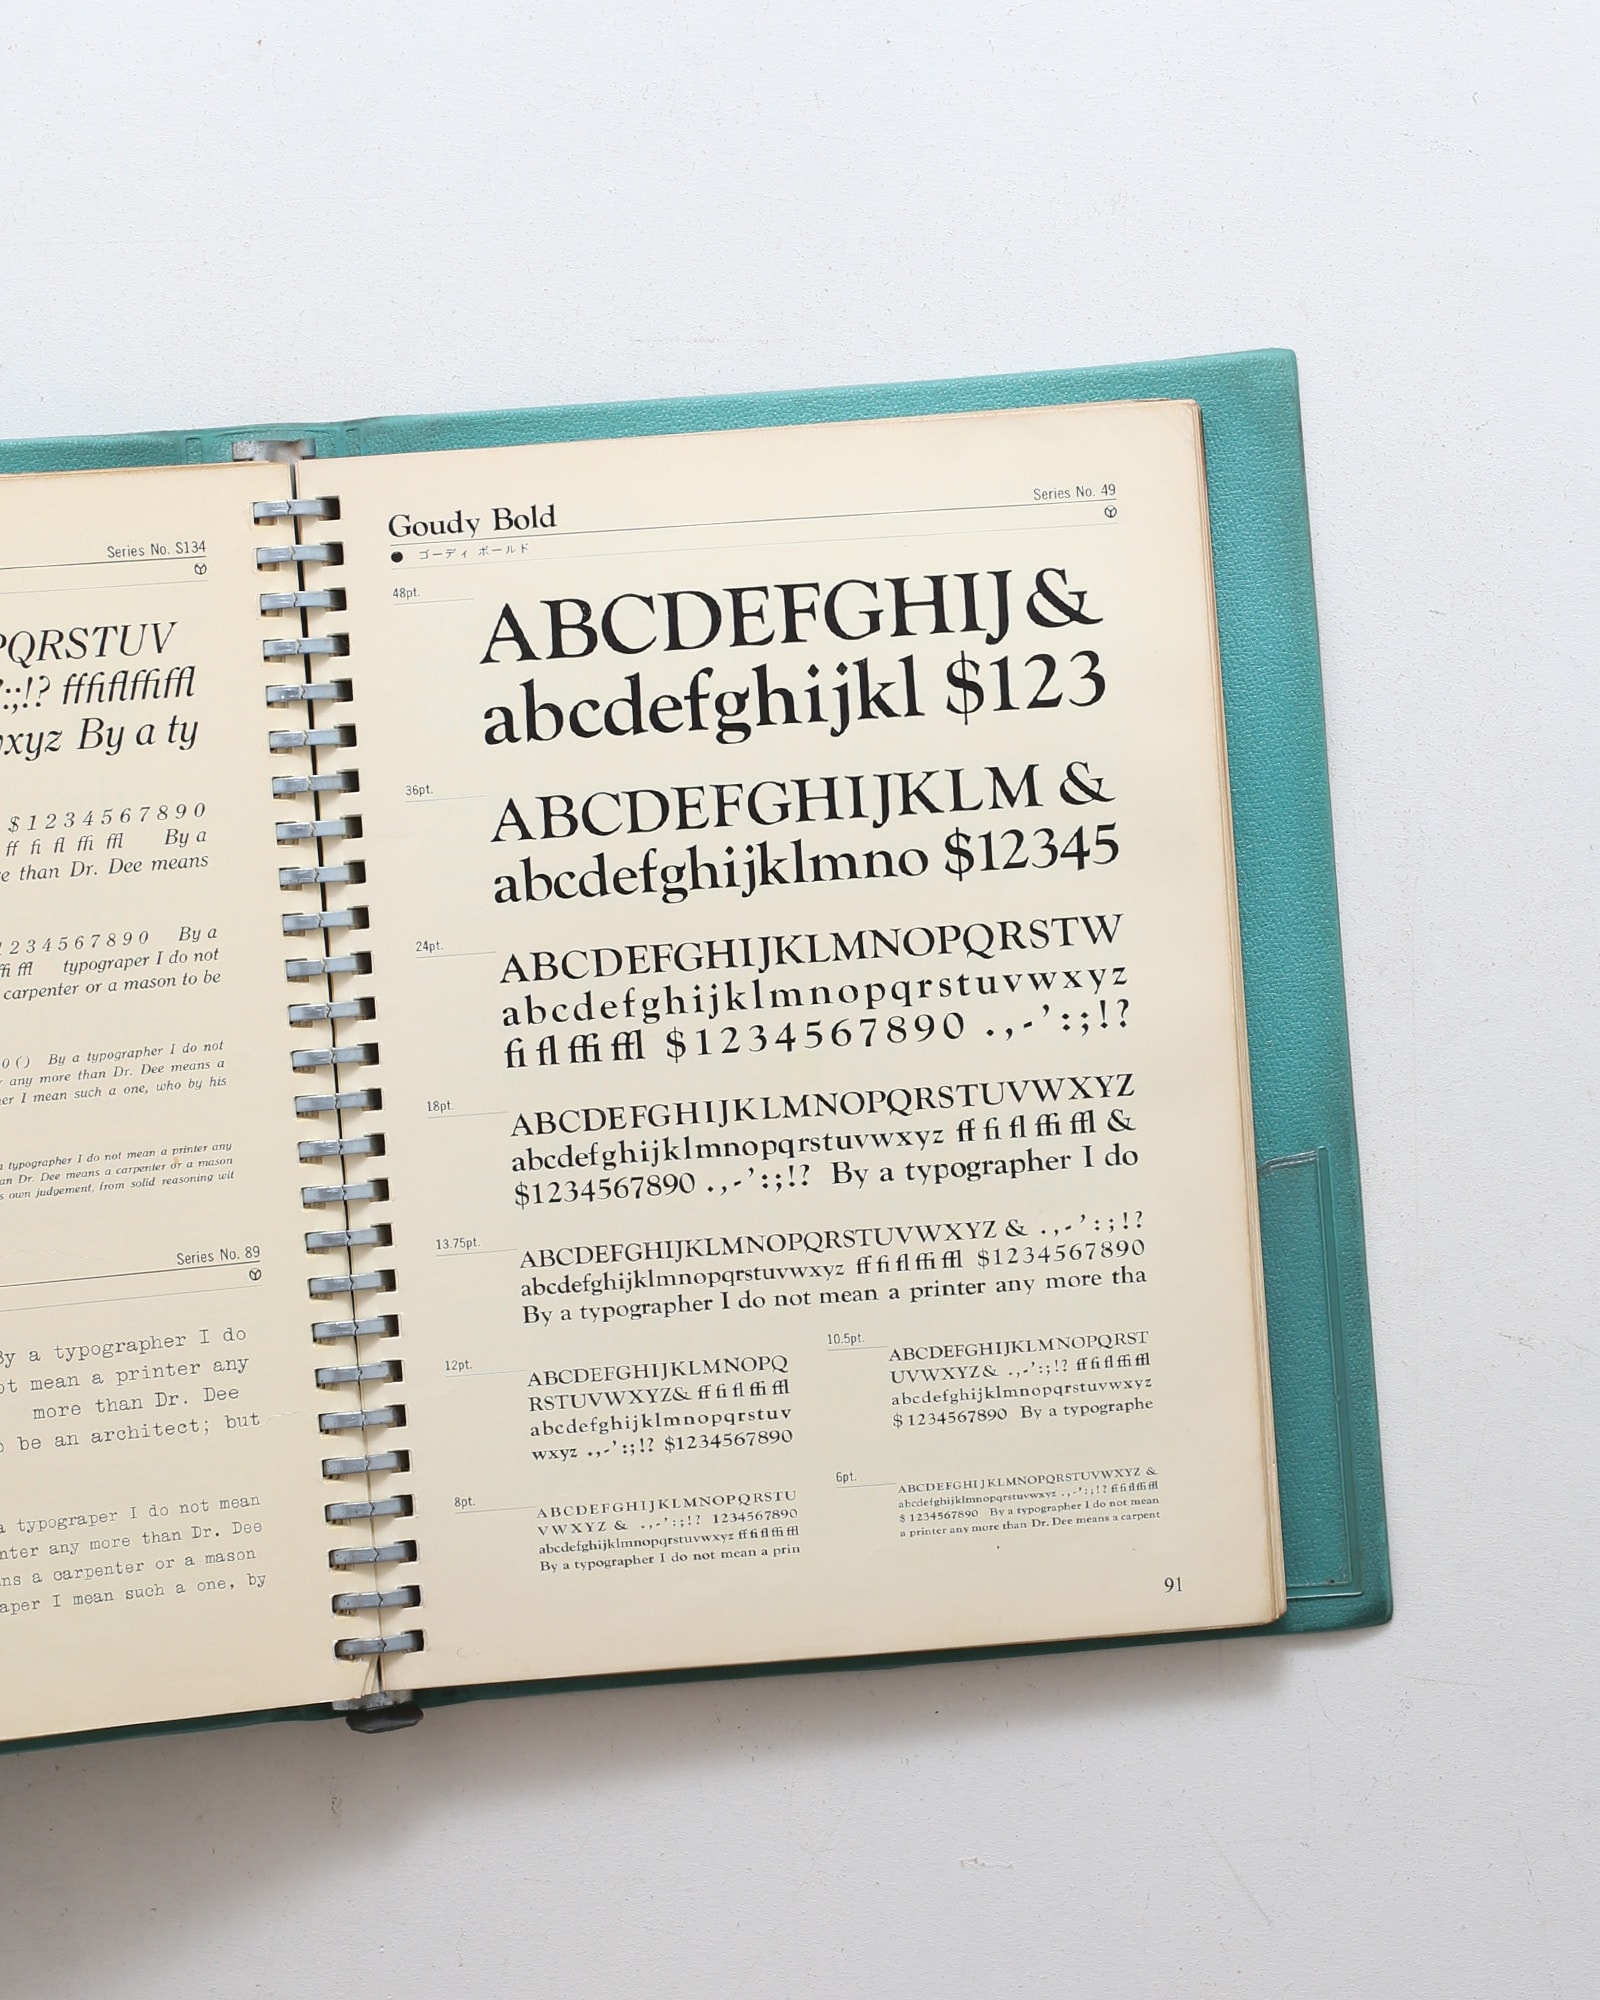 Series No. S134
PQRSTUV
':;!? fffiflffiffl
wxyz By a ty
$1234567890
ff fi fl ffi ffl By a
than Dr. Dee means
1234567890 By a
ffi ffl typograper I do not
carpenter or a mason to be
0 ( ) By a typographer I do not
any more than Dr. Dee means a
I mean such a one, who by his
typographer I do not mean a printer any
Dr. Dee means a carpenter or a mason
own judgement, from solid reasoning wit
Series No. 89
By a typographer I do
mean a printer any
more than Dr. Dee
be an architect; but
a typograper I do not mean
any more than Dr. Dee
a carpenter or a mason
I mean such a one, by
Goudy Bold
Series No. 49
● ゴーディ ボールド
48pt.
ABCDEFGHIJ&
abcdefghijkl $123
36pt.
ABCDEFGHIJKLM &
abcdefghijklmno $12345
24pt.
ABCDEFGHIJKLMNOPQRSTW
abcdefghijklmnopqrstuvwxyz
fi fl ffi ffl $1234567890 .,-':;!?
18pt.
ABCDEFGHIJKLMNOPQRSTUVWXYZ
abcdefghijklmnopqrstuvwxyz ff fi fl ffi ffl &
$1234567890 .,-':;!? By a typographer I do
13.75pt.
ABCDEFGHIJKLMNOPQRSTUVWXYZ & .,-':;!?
abcdefghijklmnopqrstuvwxyz ff fi fl ffi ffl $1234567890
By a typographer I do not mean a printer any more tha
12pt.
ABCDEFGHIJKLMNOPQ
RSTUVWXYZ& ff fi fl ffi ffl
abcdefghijklmnopqrstuv
wxyz .,-':;!? $1234567890
10.5pt.
ABCDEFGHIJKLMNOPQRST
UVWXYZ& .,-':;!? ff fi fl ffi ffl
abcdefghijklmnopqrstuvwxyz
$1234567890 By a typographe
8pt.
ABCDEFGHIJKLMNOPQRSTU
VWXYZ & .,-':;!? 1234567890
abcdefghijklmnopqrstuvwxyz ff fi fl ffi ffl
By a typographer I do not mean a prin
6pt.
ABCDEFGHIJKLMNOPQRSTUVWXYZ &
abcdefghijklmnopqrstuvwxyz .,-':;!? ff fi fl ffi ffl
$1234567890 By a typographer I do not mean
a printer any more than Dr. Dee means a carpent
91